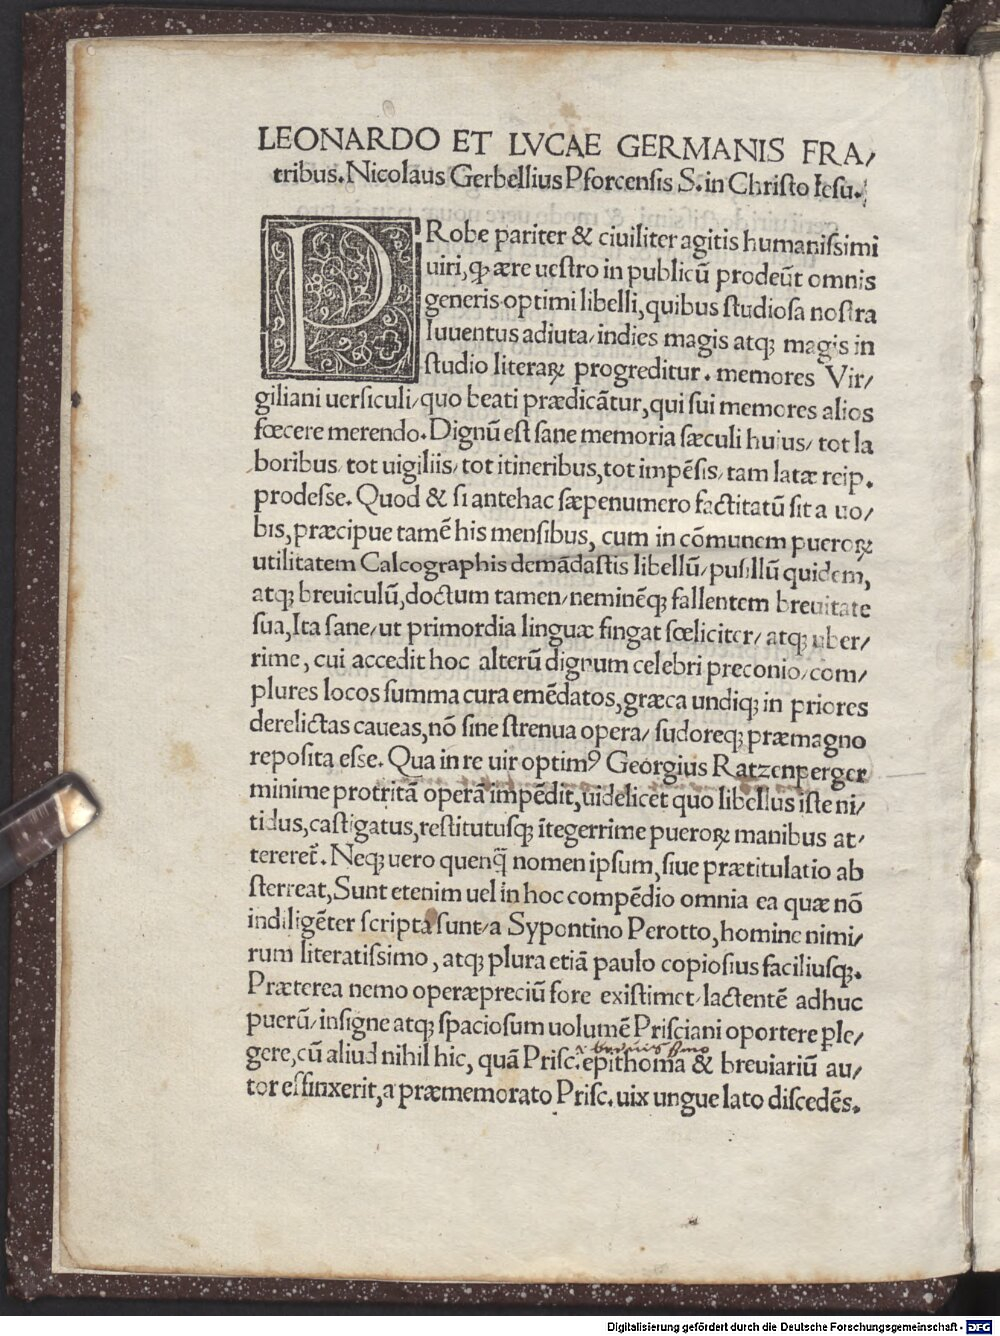 LEONARDO ET LVCAE GERMANIS FRA/
tribus. Nicolaus Gerbellius Pforcensis S. in Christo Iesu.
PRobe pariter & ciuiliter agitis humanissimi
uiri, ꝙ ære uestro in publicū prodeūt omnis
generis optimi libelli, quibus studiosa nostra
Iuuentus adiuta/ indies magis atqꝫ magis in
studio literaꝝ progreditur. memores Vir/
giliani uersiculi/ quo beati prædicātur, qui sui memores alios
fœcere merendo. Dignū est sane memoria sæculi huius/ tot la
boribus/ tot uigiliis/ tot itineribus, tot impēsis/ tam latæ reip.
prodesse. Quod & si antehac sæpenumero factitatū sit a uo/
bis, præcipue tamē his mensibus, cum in cōmunem pueroꝝ
utilitatem Calcographis demādastis libellū/ pusillū quidem,
atqꝫ breuiculū, doctum tamen/ neminēqꝫ fallentem breuitate
sua, Ita sane/ ut primordia linguæ fingat fœliciter/ atqꝫ uber/
rime, cui accedit hoc alterū dignum celebri preconio/ com/
plures locos summa cura emēdatos, græca undiqꝫ in priores
derelictas caueas, nō sine strenua opera/ sudoreqꝫ præmagno
reposita esse. Qua in re uir optimꝰ Georgius Ratzenperger
minime protritā operā impēdit, uidelicet quo libellus iste ni/
tidus, castigatus, restitutusqꝫ ītegerrime pueroꝝ manibus at/
tereret̄. Neqꝫ uero quenq̄ nomen ipsum, siue prætitulatio ab
sterreat, Sunt etenim uel in hoc compēdio omnia ea quæ nō
indiligēter scripta sunt/ a Sypontino Perotto, homine nimi/
rum literatissimo, atqꝫ plura etiā paulo copiosius faciliusqꝫ.
Præterea nemo operæpreciū fore existimet/ lactentē adhuc
puerū/ insigne atqꝫ spaciosum uolumē Prisciani oportere ꝑle/
gere, cū aliud nihil hic, quā Prisc. epithoma & breuiariū au/
tor effinxerit, a præmemorato Prisc. uix ungue lato discedēs.
Digitalisierung gefördert durch die Deutsche Forschungsgemeinschaft - DFG